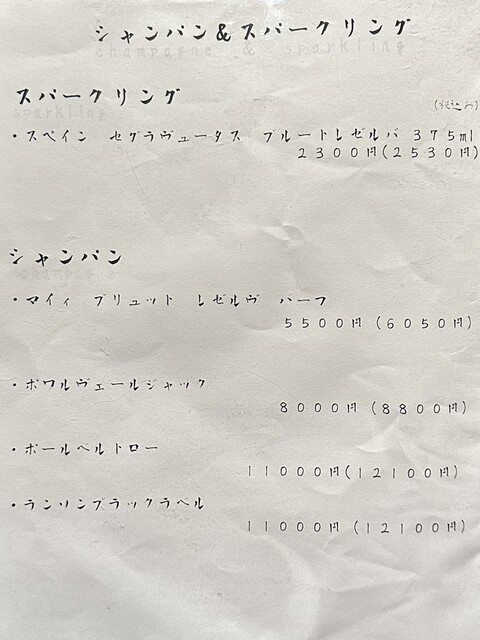 シャンパン&スパークリング
champagne & sparkling
スパークリング
sparkling
(税込み)
・スペイン セグラヴュータス ブルートレゼルバ 375ml
2300円(2530円)
シャンパン
champagne
・マイィ ブリュット レゼルヴ ハーフ
5500円 (6050円)
・ポワルヴェールジャック
8000円 (8800円)
・ポールベルトロー
11000円(12100円)
・ランソンブラックラベル
11000円 (12100円)